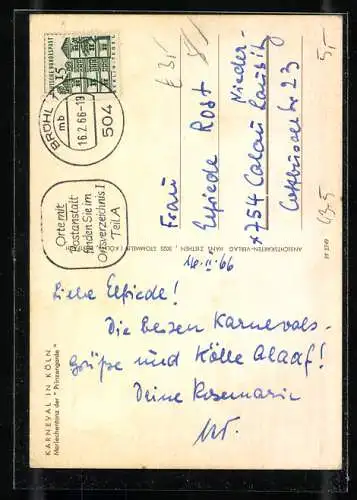 DEUTSCHE BUNDESPOST
15
BRÜHL
mb
16.2.66-19
504
Orte mit
Postanstalt
finden Sie im
Ortsverzeichnis I
Teil A
Frau
Elfriede Rost
Nieder-
x754 Calau Lausitz
Cottbuser Str 23
5,-
43.5
ANSICHTSKARTEN-VERLAG HANS ZIETHEN, 5022 STOMMELN / KÖLN
Liebe Elfriede!
Die besten Karnevals-
grüße und Kölle Alaaf!
Deine Rosemarie
KARNEVAL IN KÖLN
Mariechentanz der "Prinzengarde"